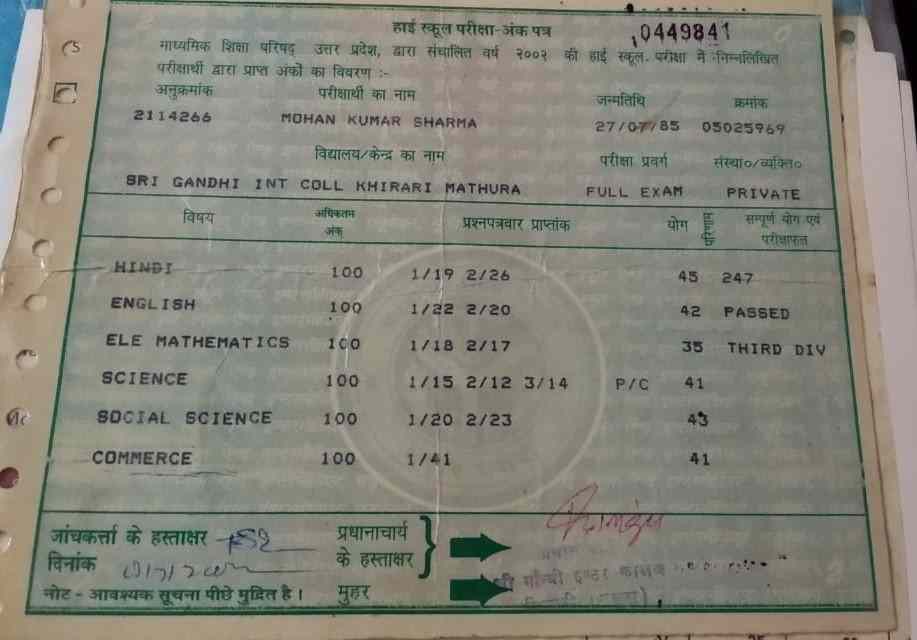 हाई स्कूल परीक्षा-अंक पत्र 0449841
माध्यमिक शिक्षा परिषद् उत्तर प्रदेश, द्वारा संचालित वर्ष २००२ की हाई स्कूल परीक्षा में निम्नलिखित
परीक्षार्थी द्वारा प्राप्त अंकों का विवरण :-
अनुक्रमांक परीक्षार्थी का नाम जन्मतिथि क्रमांक
2114266 MOHAN KUMAR SHARMA 27/07/85 05025969
विद्यालय/केन्द्र का नाम परीक्षा प्रवर्ग संस्था०/व्यक्ति०
SRI GANDHI INT COLL KHIRARI MATHURA FULL EXAM PRIVATE
विषय अधिकतम अंक प्रश्नपत्रवार प्राप्तांक योग सम्पूर्ण योग एवं परीक्षाफल
HINDI 100 1/19 2/26 45 247
ENGLISH 100 1/22 2/20 42 PASSED
ELE MATHEMATICS 100 1/18 2/17 35 THIRD DIV
SCIENCE 100 1/15 2/12 3/14 P/C 41
SOCIAL SCIENCE 100 1/20 2/23 43
COMMERCE 100 1/41 41
जांचकर्त्ता के हस्ताक्षर प्रधानाचार्य
दिनांक के हस्ताक्षर
नोट - आवश्यक सूचना पीछे मुद्रित है। मुहर